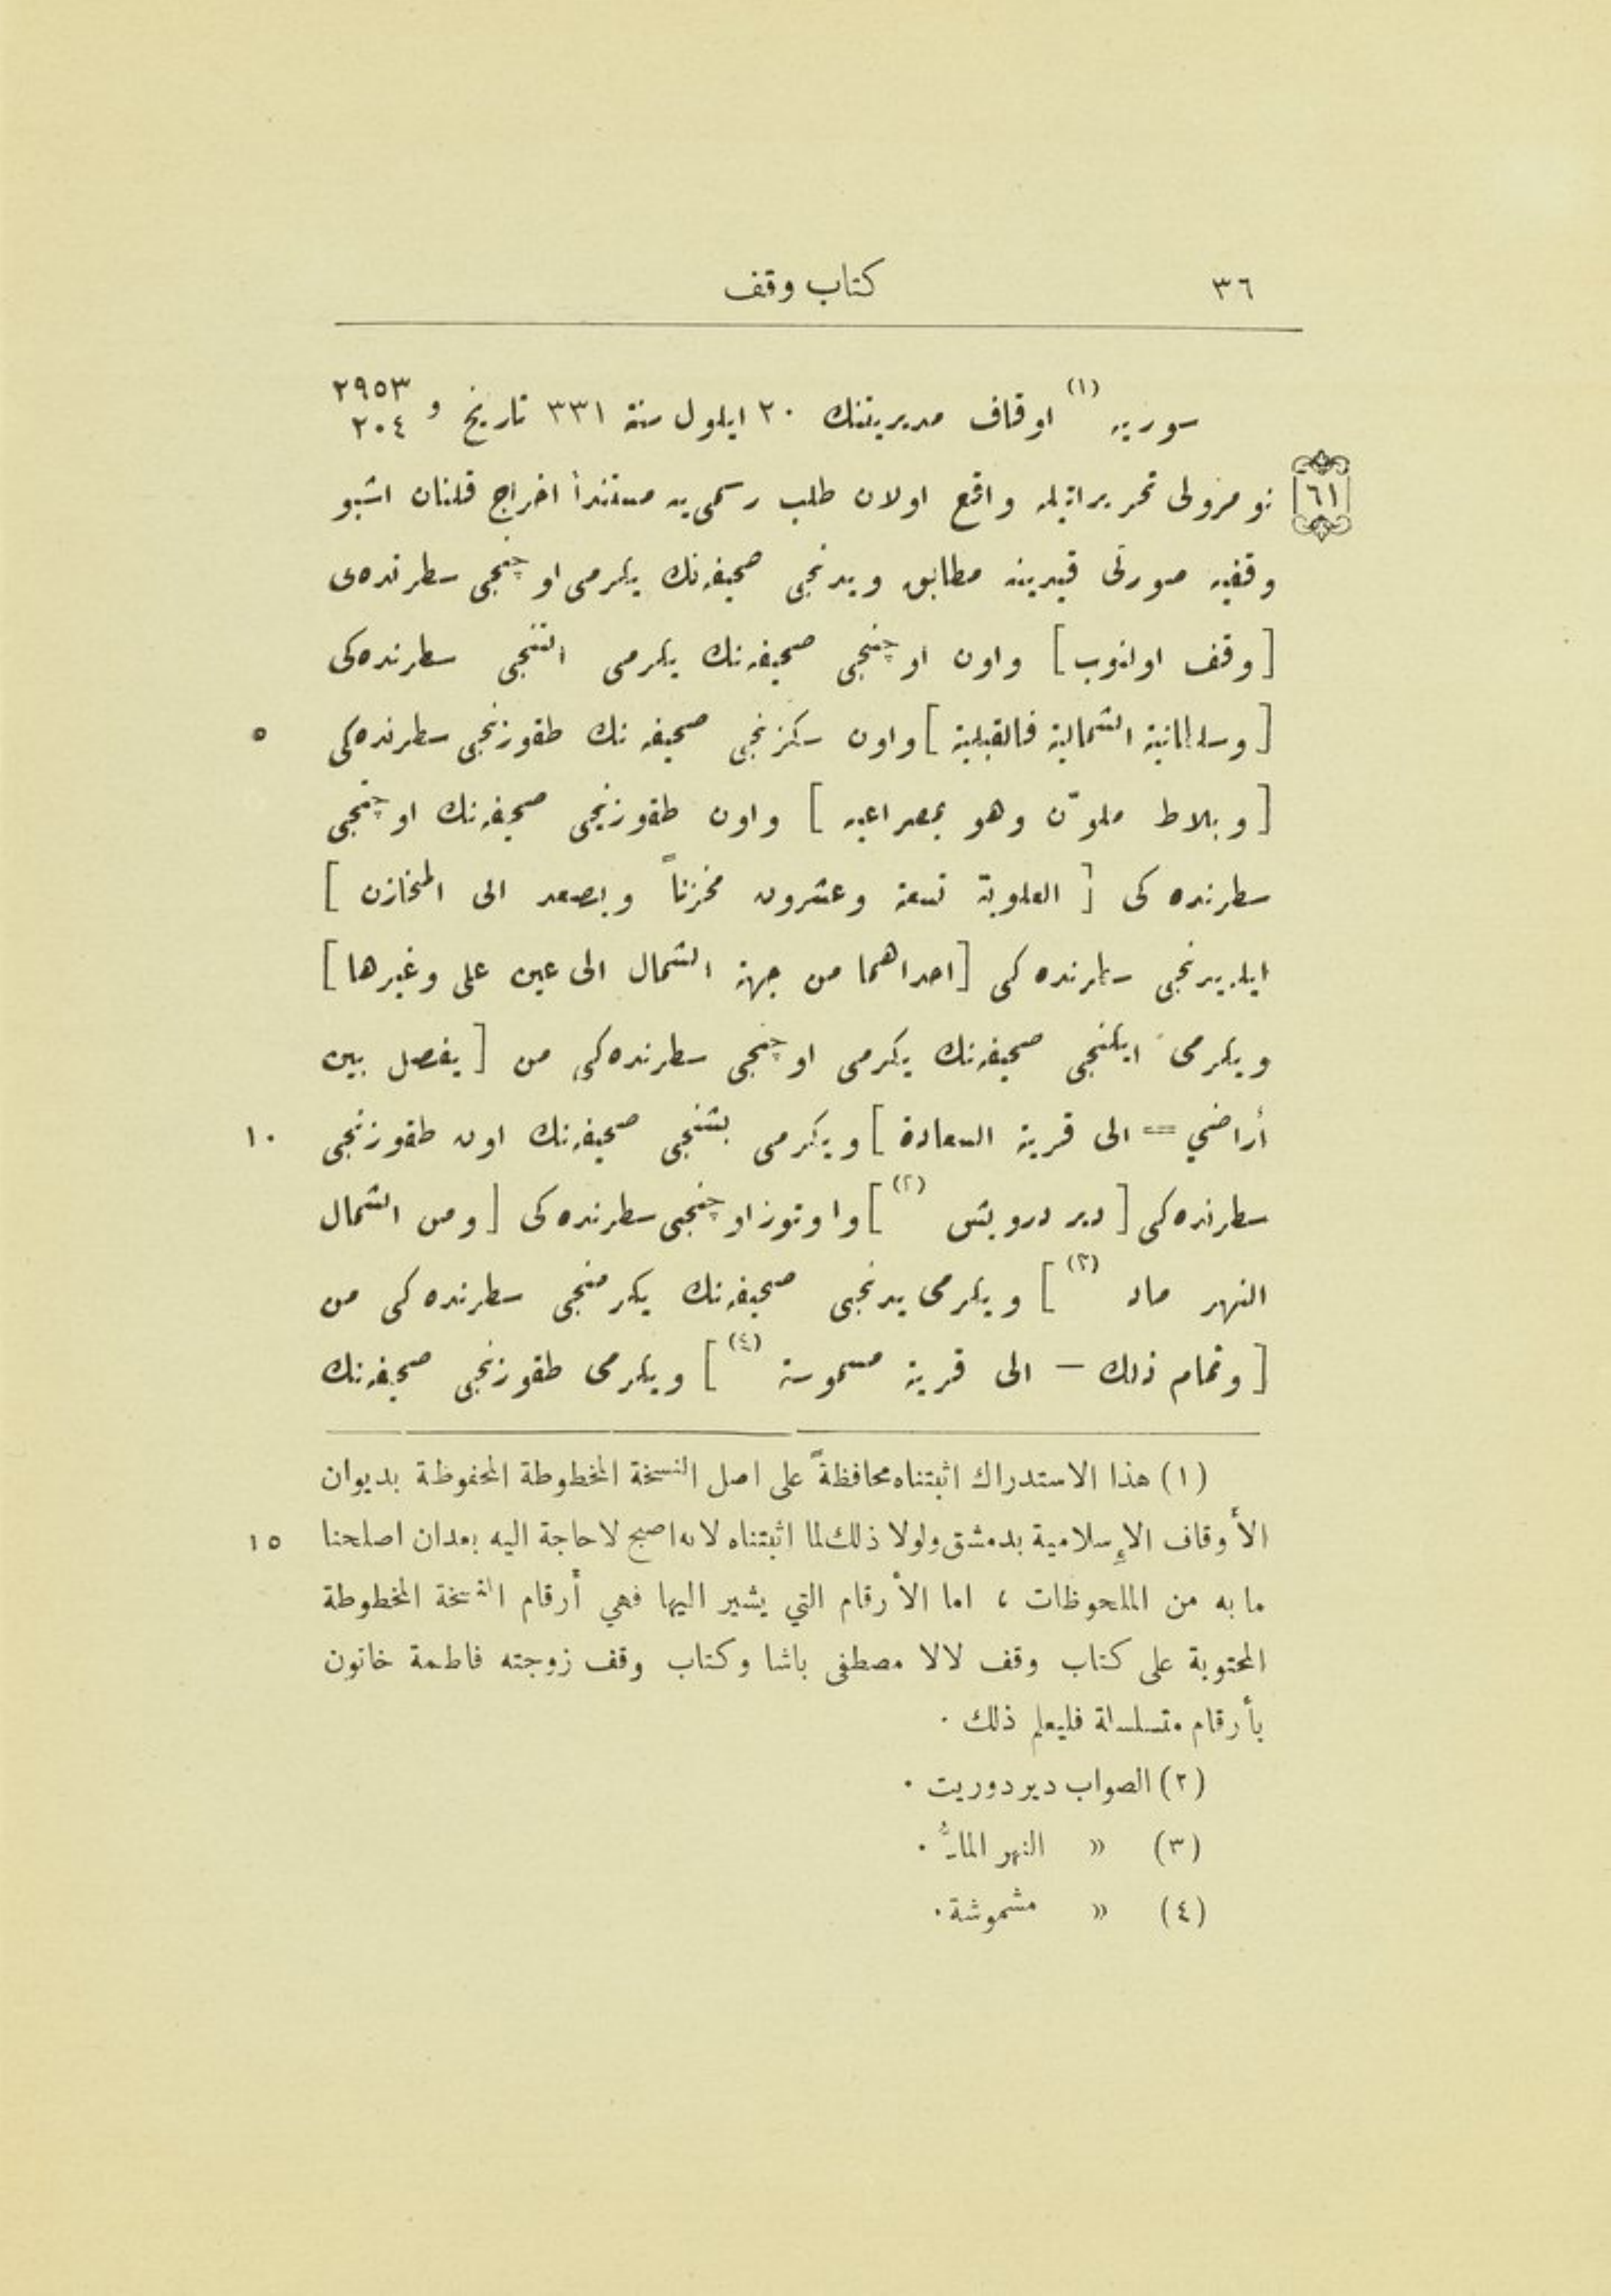 ٣٦
كتاب وقف
سوريه (١) اوقاف مديريتنك ٢٠ ايلول سنة ٣٣١ تاريخ و ٢٩٥٣ ٢٠٤
٦١
نومرولى تحريراتيله واقع اولان طلب رسمى يه مستنداً اخراج قلنان اشبو
وقفيه صورتى قيدينه مطابق ويدنجى صحيفه نك يكرمى اوچنجى سطرنده ى
[ وقف اولنوب ] واون اوچنجى صحيفه نك يكرمى التنجى سطرنده كى
[ وسلطانية الشمالية فالقبلية ] واون سكزنجى صحيفه نك طقوزنجى سطرنده كى
٥
[ وبلاط ملوّن وهو بمصراعيه ] واون طقوزنجى صحيفه نك اوچنجى
سطرنده كى [ العلوية تسعة وعشرون مخزناً ويصعد الى المخازن ]
ايله يدنجى سطرنده كى [ احداهما من جهة الشمال الى عين على وغيرها ]
ويكرمى ايكنجى صحيفه نك يكرمى اوچنجى سطرنده كى من [ يفصل بين
أراضي = الى قرية السعادة ] ويكرمى بشنجى صحيفه نك اون طقوزنجى
١٠
سطرنده كى [ دير درويش (٢) ] واوتوز اوچنجى سطرنده كى [ ومن الشمال
النهر ماد (٣) ] ويكرمى يدنجى صحيفه نك يكرمنجى سطرنده كى من
[ وتمام ذلك – الى قرية مسموسة (٤) ] ويكرمى طقوزنجى صحيفه نك
(١) هذا الاستدراك اثبتناه محافظةً على اصل النسخة المخطوطة المحفوظة بديوان
الأوقاف الإسلامية بدمشق ولولا ذلك لما اثبتناه لانه اصبح لا حاجة اليه بعد ان اصلحنا
١٥
ما به من الملحوظات ، اما الأرقام التي يشير اليها فهي أرقام النسخة المخطوطة
المحتوية على كتاب وقف لالا مصطفى باشا وكتاب وقف زوجته فاطمة خاتون
بأرقام متسلسلة فليعلم ذلك .
(٢) الصواب دير دوريت .
(٣) » النهر المادُّ .
(٤) » مشموشة .